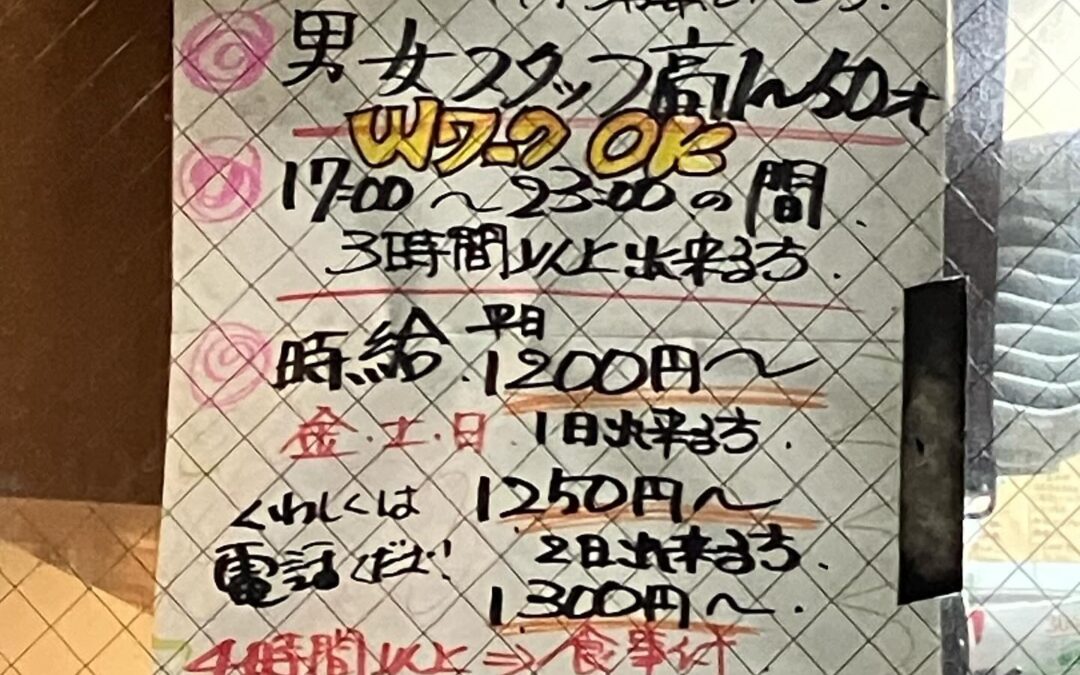 男女スタッフ高1〜50才
Wワーク OK
17:00〜23:00の間.
3時間以上出来る方.
時給 平日 1200円〜
金・土・日 1日出来る方.
1250円〜
くわしくは
電話ください!
2日出来る方.
1,300円〜.
4時間以上⇒食事付